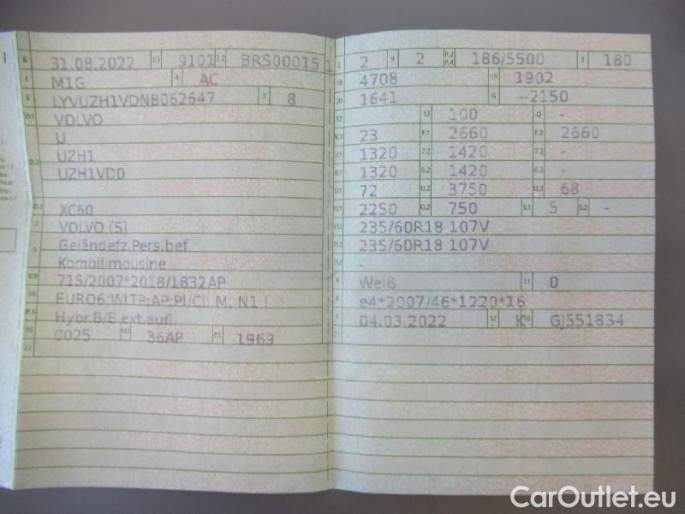 31.08.2022 9101 BRS00015 1
M1G AC
LYVUZH1VDNB062647 8
VOLVO
U
UZH1
UZH1VD0
XC60
VOLVO (S)
Geländefz.Pers.bef
Kombilimousine
715/2007*2018/1832AP
EURO6 WLTP;AP;PI/CI, M, N1 I
Hybr.B/E ext.aufl
0025 36AP 1969
2 2 186/5500 180
4708 1902
1641 -2150
100 -
23 2660 2660
1320 1420 -
1320 1420 -
72 3750 68
2250 750 5 -
235/60R18 107V
235/60R18 107V
-
Weiß 0
e4*2007/46*1220*16
04.03.2022 K GJ551834
CarOutlet.eu